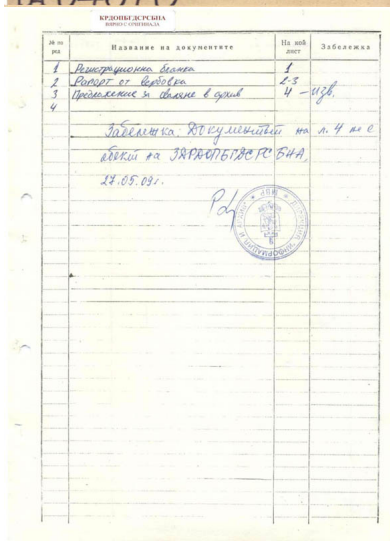 КРДОПБГДСРСБНА
ВЯРНО С ОРИГИНАЛА
№ по ред Название на документите На кой лист Забележка
1 Регистрационна бланка 1
2 Рапорт от вербовка 2-3
3 Предложение за сваляне в архив 4 – Изв.
4
Забележка: Документът на л. 4 не е
обект на ЗДРДОПБГДСРСБНА,
27.05.09г.